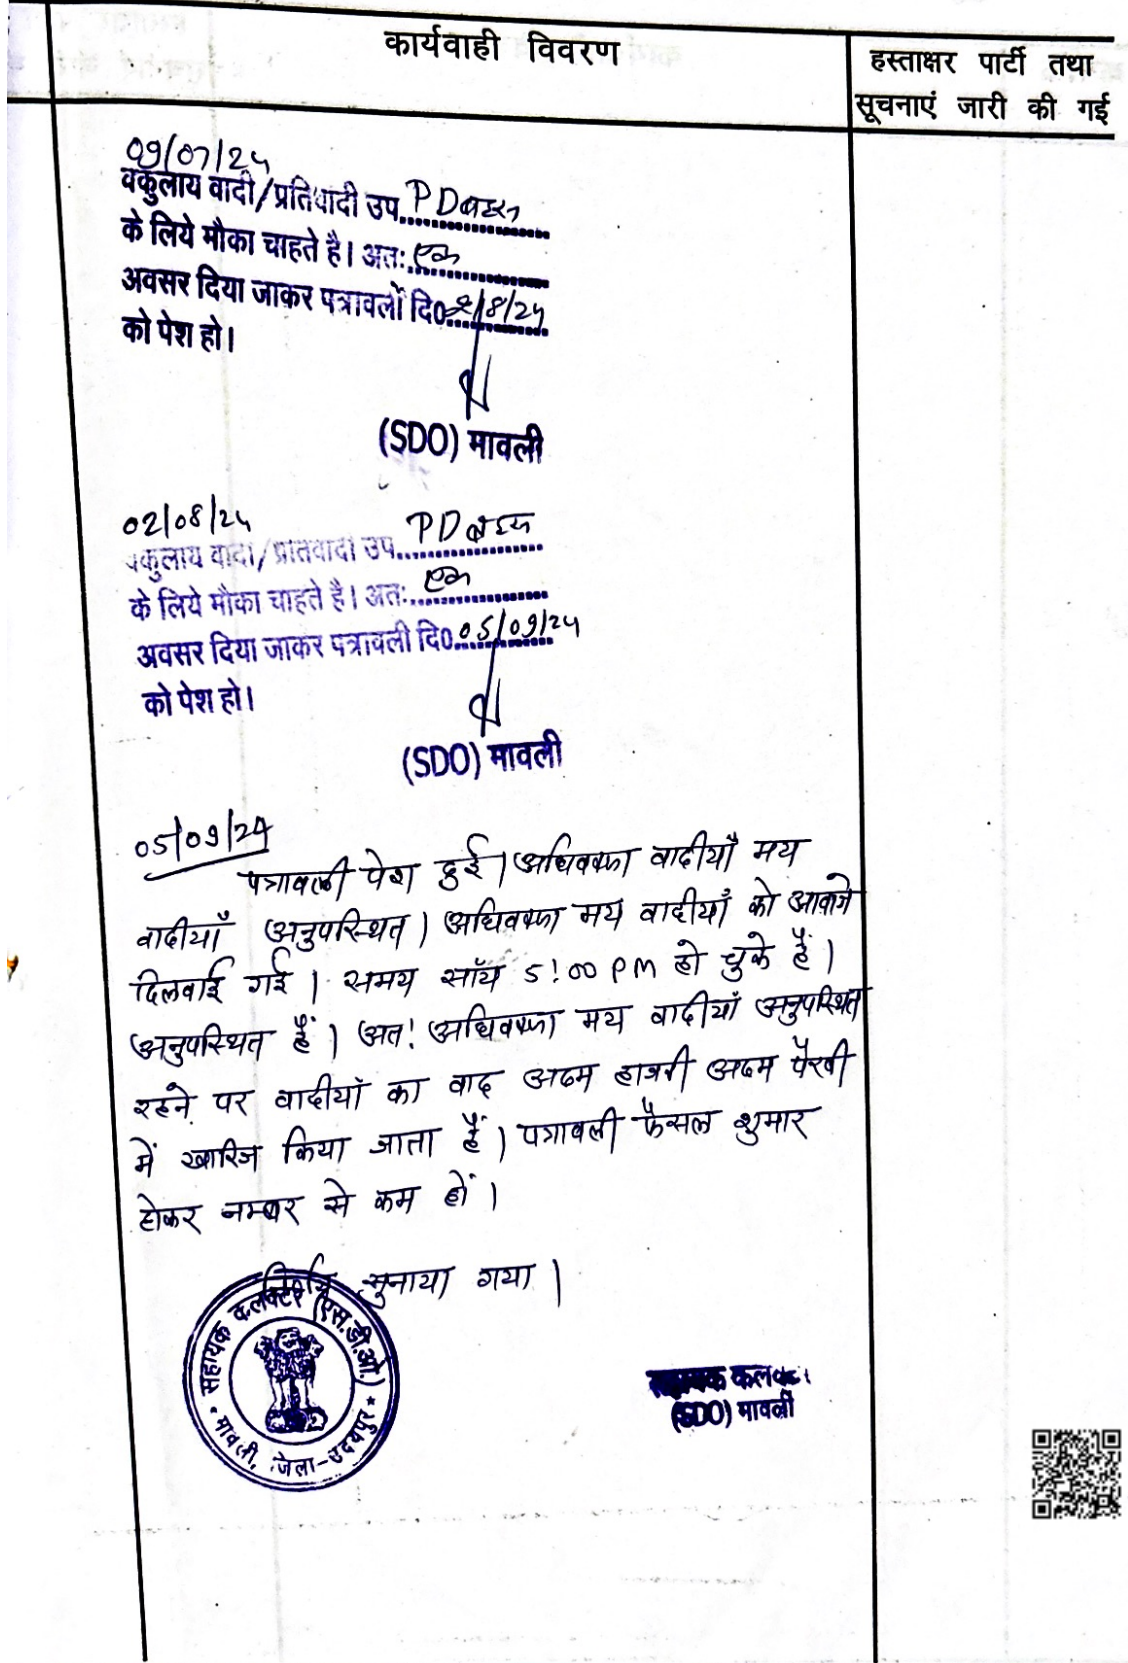 कार्यवाही विवरण
हस्ताक्षर पार्टी तथा
सूचनाएं जारी की गई
09/07/24
वकुलाय वादी/प्रतिवादी उप. P D बहस
के लिये मौका चाहते है। अतः एक
अवसर दिया जाकर पत्रावली दि0 2/8/24
को पेश हो।
(SDO) मावली
02/08/24
वकुलाय वादी/प्रतिवादी उप. P D बहस
के लिये मौका चाहते है। अतः एक
अवसर दिया जाकर पत्रावली दि0 05/09/24
को पेश हो।
(SDO) मावली
05/09/24
पत्रावली पेश हुई। अधिवक्ता वादीयाँ मय
वादीयाँ अनुपस्थित। अधिवक्ता मय वादीयाँ को आवाजे
दिलवाई गई। समय सॉय 5:00 PM हो चुके हैं।
अनुपस्थित हैं। अत: अधिवक्ता मय वादीयाँ अनुपस्थित
रहने पर वादीयाँ का वाद अदम हाजरी अदम पैरवी
में खारिज किया जाता हैं। पत्रावली फैसल शुमार
होकर नम्बर से कम हों।
निर्णय सुनाया गया।
सहायक कलक्टर (एस.डी.ओ.)
मावली, जिला-उदयपुर
सहायक कलक्टर
(SDO) मावली